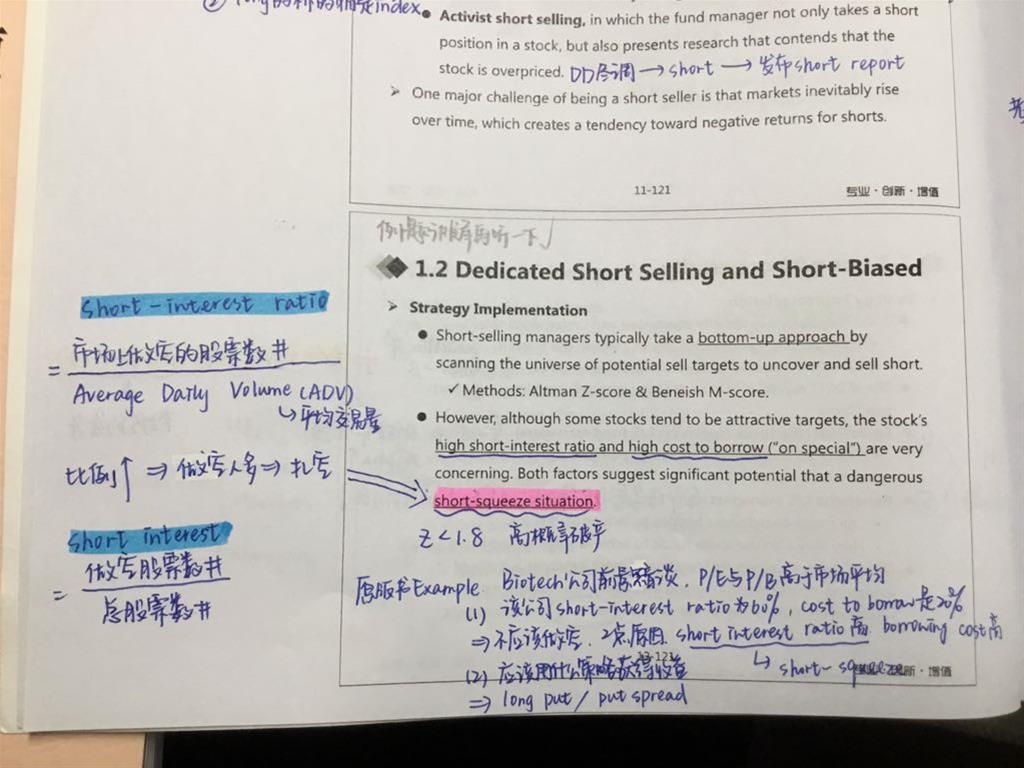 ② long的标的 index
• Activist short selling, in which the fund manager not only takes a short
position in a stock, but also presents research that contends that the
stock is overpriced. DD尽调 → short → 发布short report
➢ One major challenge of being a short seller is that markets inevitably rise
over time, which creates a tendency toward negative returns for shorts.
11-121
专业·创新·增值
例题讲解再听一下√
1.2 Dedicated Short Selling and Short-Biased
➢ Strategy Implementation
• Short-selling managers typically take a bottom-up approach by
scanning the universe of potential sell targets to uncover and sell short.
✓ Methods: Altman Z-score & Beneish M-score.
• However, although some stocks tend to be attractive targets, the stock's
high short-interest ratio and high cost to borrow ("on special") are very
concerning. Both factors suggest significant potential that a dangerous
short-squeeze situation.
short-interest ratio
= 市场上做空的股票数#
Average Daily Volume (ADV)
↳ 平均交易量
比例↑ ⇒ 做空人多 ⇒ 扎空
short interest
= 做空股票数#
总股票数#
Z<1.8 高概率破产
原版书Example Biotech公司前景暗淡, P/E与P/B高于市场平均
(1) 该公司short-interest ratio为60%, cost to borrow是20%
⇒ 不应该做空, 2点原因, short interest ratio高, borrowing cost高
↳ short-squeeze
(2) 应该用什么策略获得收益
⇒ long put / put spread
13-121
创新·增值